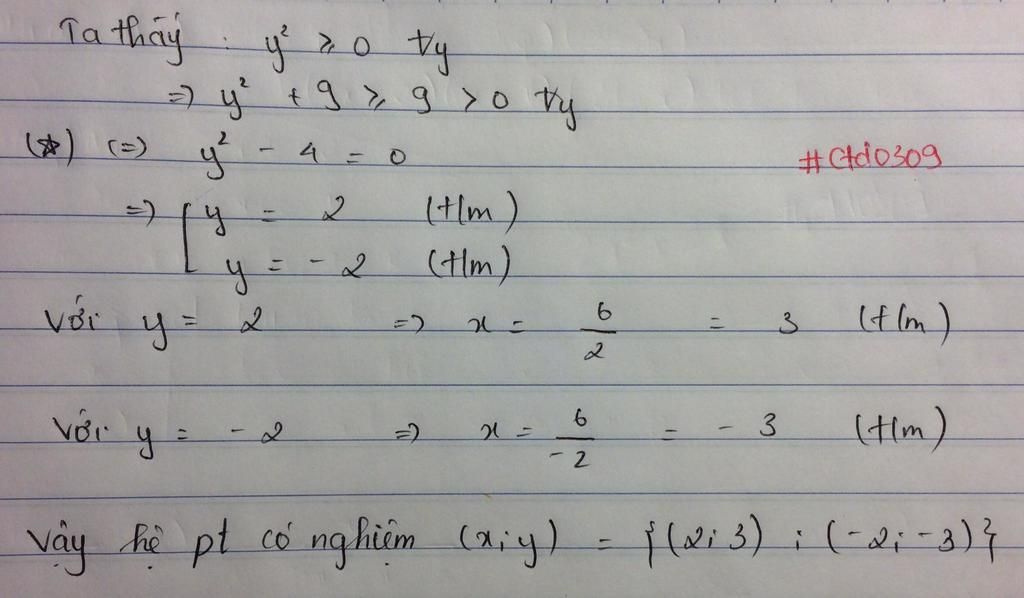 Ta thấy : y² ≥ 0 ∀y
=> y² + 9 ≥ 9 > 0 ∀y
(*) (=) y² - 4 = 0 #Ctd0309
=> [ y = 2 (t/m)
y = - 2 (t/m)
Với y = 2 => x = 6/2 = 3 (t/m)
Với y = - 2 => x = 6/-2 = - 3 (t/m)
Vậy hệ pt có nghiệm (x;y) = {(2;3) ; (-2;-3)}